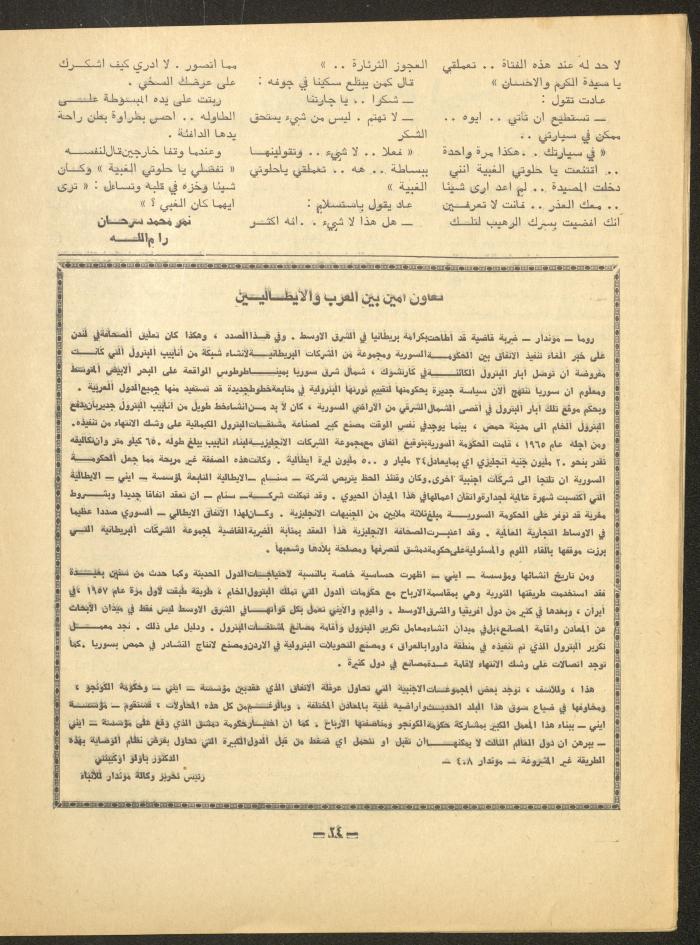 لا حد له عند هذه الفتاة .. تعملقي
يا سيدة الكرم والاحسان »
عادت تقول :
ــ تستطيع ان تأتي .. ايوه ..
ممكن في سيارتي ..
« في سيارتك .. هكذا مرة واحدة
.. اقتنعت يا حلوتي الغبية انني
دخلت المصيدة .. لم اعد ارى شيئا
.. معك العذر .. فانت لا تعرفين
انك افضيت بسرك الرهيب لتلك
العجوز الثرثارة .. »
قال كمن يبتلع سكينا في جوفه :
ــ شكرا .. يا جارتنا
ــ لا تهتم . ليس من شيء يستحق
الشكر
« فعلا .. لا شيء .. وتقولينها
ببساطة .. هه .. تعملقي ياحلوتي
الغبية »
عاد يقول باستسلام :
ــ هل هذا لا شيء .. انه اكثر
مما اتصور . لا ادري كيف اشكرك
على عرضك السخي .
ربتت على يده المبسوطة على
الطاوله .. احس بطراوة بطن راحة
يدها الدافئة .
وعندما وقفا خارجين قال لنفسه
« تفضلي يا حلوتي الغبية » وكان
شيئا وخزه في قلبه وتساءل : « ترى
ايهما كان الغبي ؟ »
نمر محمد سرحان
رام الله
تعاون امين بين العرب والايطاليين
روما ــ موندار ــ ضربة قاضية قد اطاحت بكرامة بريطانيا في الشرق الاوسط . وفي هذا الصدد ، وهكذا كان تعليق الصحافة في لندن
على خبر الغاء تنفيذ الاتفاق بين الحكومة السورية ومجموعة من الشركات البريطانية لانشاء شبكة من انابيب البترول التي كانت
مفروضة ان توصل ابار البترول الكائنة في كارتشوك ، شمال شرق سوريا بميناء طرطوس الواقعة على البحر الابيض المتوسط
ومعلوم ان سوريا تنتهج الان سياسة جديرة بحكومتها لتقييم ثورتها البترولية في متابعة خطوط جديدة قد تستفيد منها جميع الدول العربية .
وبحكم موقع تلك ابار البترول في اقصى الشمال الشرقي من الاراضي السورية ، كان لا بد من انشاء خط طويل من انابيب البترول جدير بان يدفع
البترول الخام الى مدينة حمص ، بينما يوجد في نفس الوقت مصنع كبير لصناعة مشتقات البترول الكيمائية على وشك الانتهاء من تنفيذه.
ومن اجله عام ١٩٦٥ ، قامت الحكومة السورية بتوقيع اتفاق مع مجموعة الشركات الانجليزية لبناء انابيب يبلغ طوله ٦٥٠ كيلو متر وان تكاليفه
تقدر بنحو ٢٠ مليون جنيه انجليزي اي بما يعادل ٣٤ مليار و ٥٠٠ مليون ليرة ايطالية . وكانت هذه الصفقة غير مريحة مما جعل الحكومة
السورية ان تلتجا الى شركات اجنبية اخرى. وكان وقتئذ الحظ يتربص لشركة ــ سنام ــ الايطالية التابعة لمؤسسة ــ ايني ــ الايطالية
التي اكتسبت شهرة عالية لجدارة واتقان اعمالها في هذا الميدان الحيوي . وقد تمكنت شركة ــ سنام ــ ان تعقد اتفاقا جديدا وبشروط
مغرية قد توفر على الحكومة السورية مبلغ ثلاثة ملايين من الجنيهات الانجليزية . وكان لهذا الاتفاق الايطالي ــ السوري صددا عظيما
في الاوساط التجارية العالمية . وقد اعتبرت الصحافة الانجليزية هذا العقد بمثابة الضربة القاضية لمجموعة الشركات البريطانية التي
برزت موقفها بالقاء اللوم والمسئولية على حكومة دمشق لتصرفها ومصلحة بلادها وشعبها .
ومن تاريخ انشائها ومؤسسة ــ ايني ــ اظهرت حساسية خاصة بالنسبة لاحتياجات الدول الحديثة وكما حدث من سنين بعيدة
فقد استخدمت طريقتها الثورية وهي بمقاسمة الارباح مع حكومات الدول التي تملك البترول الخام ، طريقة طبقت لاول مرة عام ١٩٥٧ ، في
أيران ، وبعدها في كثير من دول افريقيا والشرق الاوسط . واليوم والايني تعمل بكل قواتها في الشرق الاوسط ليس فقط في ميدان الابحاث
عن المعادن واقامة المصانع ، بل في ميدان انشاء معامل تكرير البترول وأقامة مصانع لمشتقات البترول . ودليل على ذلك . نجد معمل
تكرير البترول الذي تم تنفيذه في منطقة داورا بالعراق ، ومصنع التحويلات البترولية في الاردن ومصنع لانتاج النشادر في حمص بسوريا . كما
توجد اتصالات على وشك الانتهاء لاقامة عدة مصانع في دول كثيرة .
هذا ، وللاسف ، توجد بعض المجموعات الاجنبية التي تحاول عرقلة الاتفاق الذي عقد بين مؤسسة ــ ايني ــ وحكومة الكونجو ،
ومخاوفها في ضياع سوق هذا البلد الحديث واراضية غنية بالمعادن المختلفة . وبالرغم من كل هذه المحاولات ، فستقوم ــ مؤسسة
ايني ــ ببناء هذا المعمل الكبير بمشاركة حكومة الكونجو ومناصفتها الارباح . كما ان اختيار حكومة دمشق الذي وقع على مؤسسة ــ ايني
ــ يبرهن ان دول العالم الثالث لا يمكنها ان تقبل او تتحمل اي ضغط من قبل الدول الكبيرة التي تحاول بفرض نظام الوصاية بهذه
الطريقة غير المشروعة ــ موندار ٤٠٨ ــ
الدكتور باولو اوكيبنتي
رئيس تحرير وكالة موندار للانباء
ــ ٢٤ ــ